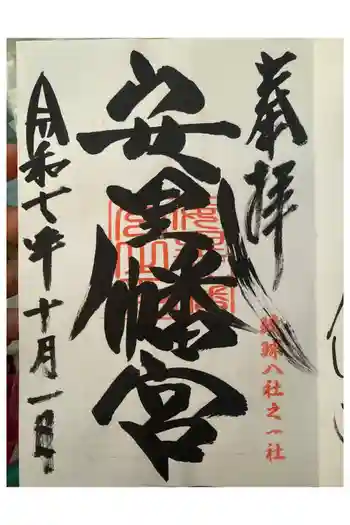 奉拝
安里八幡宮
琉球八社之一社
令和七年十月一日